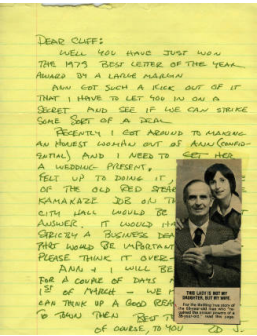 DEAR CLIFF:
WELL YOU HAVE JUST WON
THE 1979 BEST LETTER OF THE YEAR
AWARD BY A LARGE MARGIN
ANN GOT SUCH A KICK OUT OF IT
THAT I HAVE TO LET YOU IN ON A
SECRET AND SEE IF WE CAN STRIKE
SOME SORT OF A DEAL
RECENTLY I GOT AROUND TO MAKING
AN HONEST WOMAN OUT OF ANN (CONFID-
ENTIAL) AND I NEED TO GET HER
A WEDDING PRESENT.
FELT UP TO DOING IT
OF THE OLD RED
KAMAKAZE JOB ON TH
CITY HALL WOULD BE
ANSWER. IT WOULD HA
STRICTLY A BUSINESS DEA
THAT WOULD BE IMPORTA
PLEASE THINK IT OVER
ANN & I WILL BE
FOR A COUPLE OF DAYS
1ST OF MARCH WE
CAN THINK UP A GOOD REA
TO THEN BEST TH
OF COURSE, TO YOU
ED J.
THIS LADY IS NOT MY
DAUGHTER, BUT MY WIFE